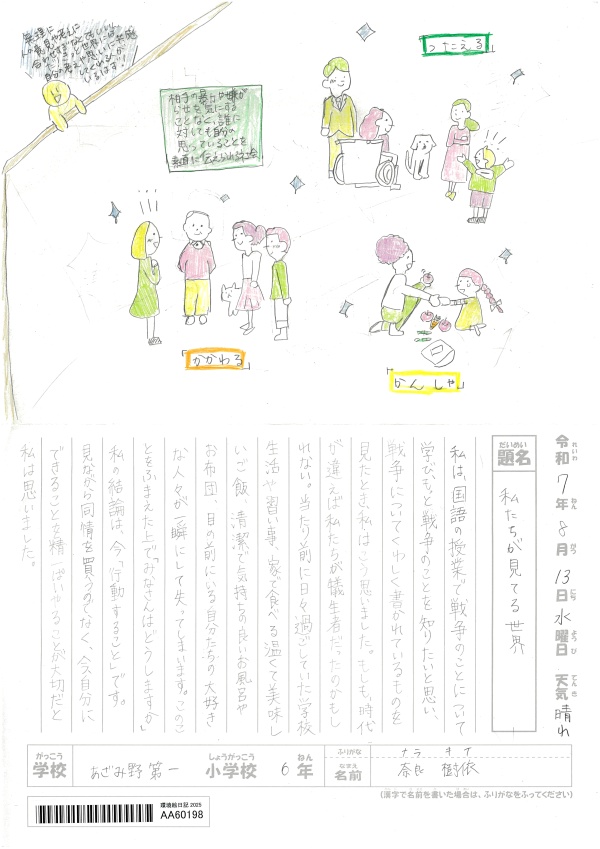 つたえる
相手の暴言や嫌が
らせも気にする
ことなく、誰に
対しても自分の
思っていることを
素直に伝えられる社会
「かかわる」
「かんしゃ」
令和7年8月13日水曜日 天気 晴れ
れいわ ねん がつ にち ようび てんき
だいめい
題名
私たちが見てる世界
私は、国語の授業で戦争のことについて
学び、もっと戦争のことを知りたいと思い、
戦争についてくわしく書かれているものを
見たとき、私はこう思いました。もしも、時代
が違えば私たちが犠生者だったのかもし
れない。当たり前に日々過ごしていた学校
生活や習い事、家で食べる温くて美味し
いご飯、清潔で気持ちの良いお風呂や
お布団、目の前にいる自分たちの大好き
な人々が一瞬にして失ってしまいます。このこ
とをふまえた上で「みなさんはどうしますか」
私の結論は、今「行動すること」です。
見ながら同情を買うのでなく、今、自分に
できることを精一ぱいやることが大切だと
私は思いました。
がっこう しょうがっこう ねん
学校 あざみ野第一 小学校 6年
ふりがな ナラ キイ
なまえ
名前 奈良 樹依
(漢字で名前を書いた場合は、ふりがなをふってください)
環境絵日記 2025
AA60198